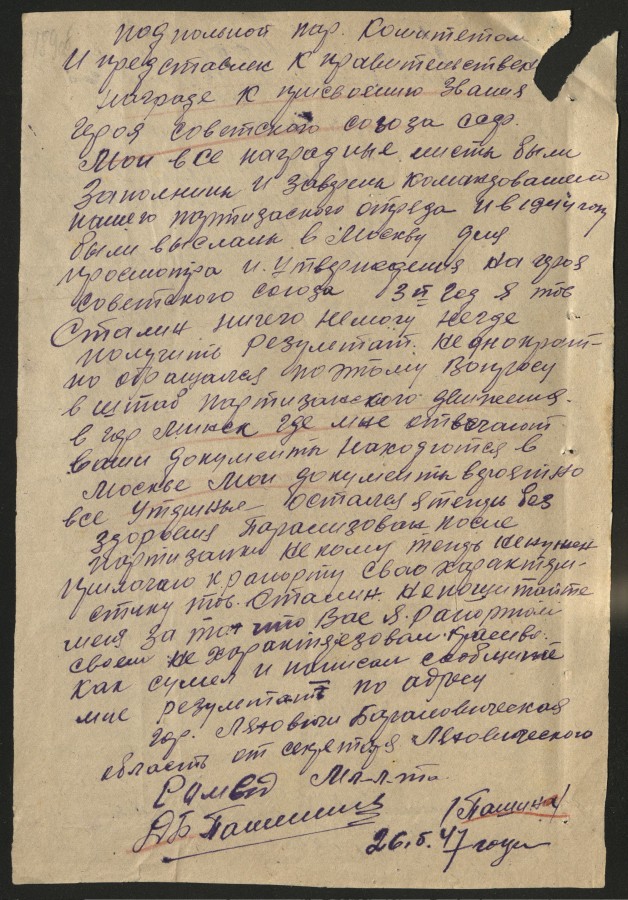 подпольной пар. Комитетом.
И представлен к правительствен
награде к присвоению Звания
героя советского союза ссср.
Мои все наградные листы были
Заполнины и Заврены командованием
нашего партизаского отреда и в 1944 году
были высланы в Москву для
просмотра и. утверждения на героя
советского союза 3й год я тов
Сталин ничего немогу негде
получить резултат. неоднократ-
но обращался поэтому вопросу
в штаб партизанского движения.
в гор Минск где мне отвечают
ваши документы находются в
Москве Мои документы вероятно
все остался я теперь без
здоровия Парализован после
партизанки некому теперь ненужен
прилагаю к рапорту свою характери-
стику тов. Сталин. непощитайте
меня за то что Вас я. рапортом
своем не красиво.
как сумел и написал сообщите
мне резултат по адресу
гор. Ляховичи Барановическая
область от секретаря Ляховического
М-л-та.
Пашина
26.5.47 года